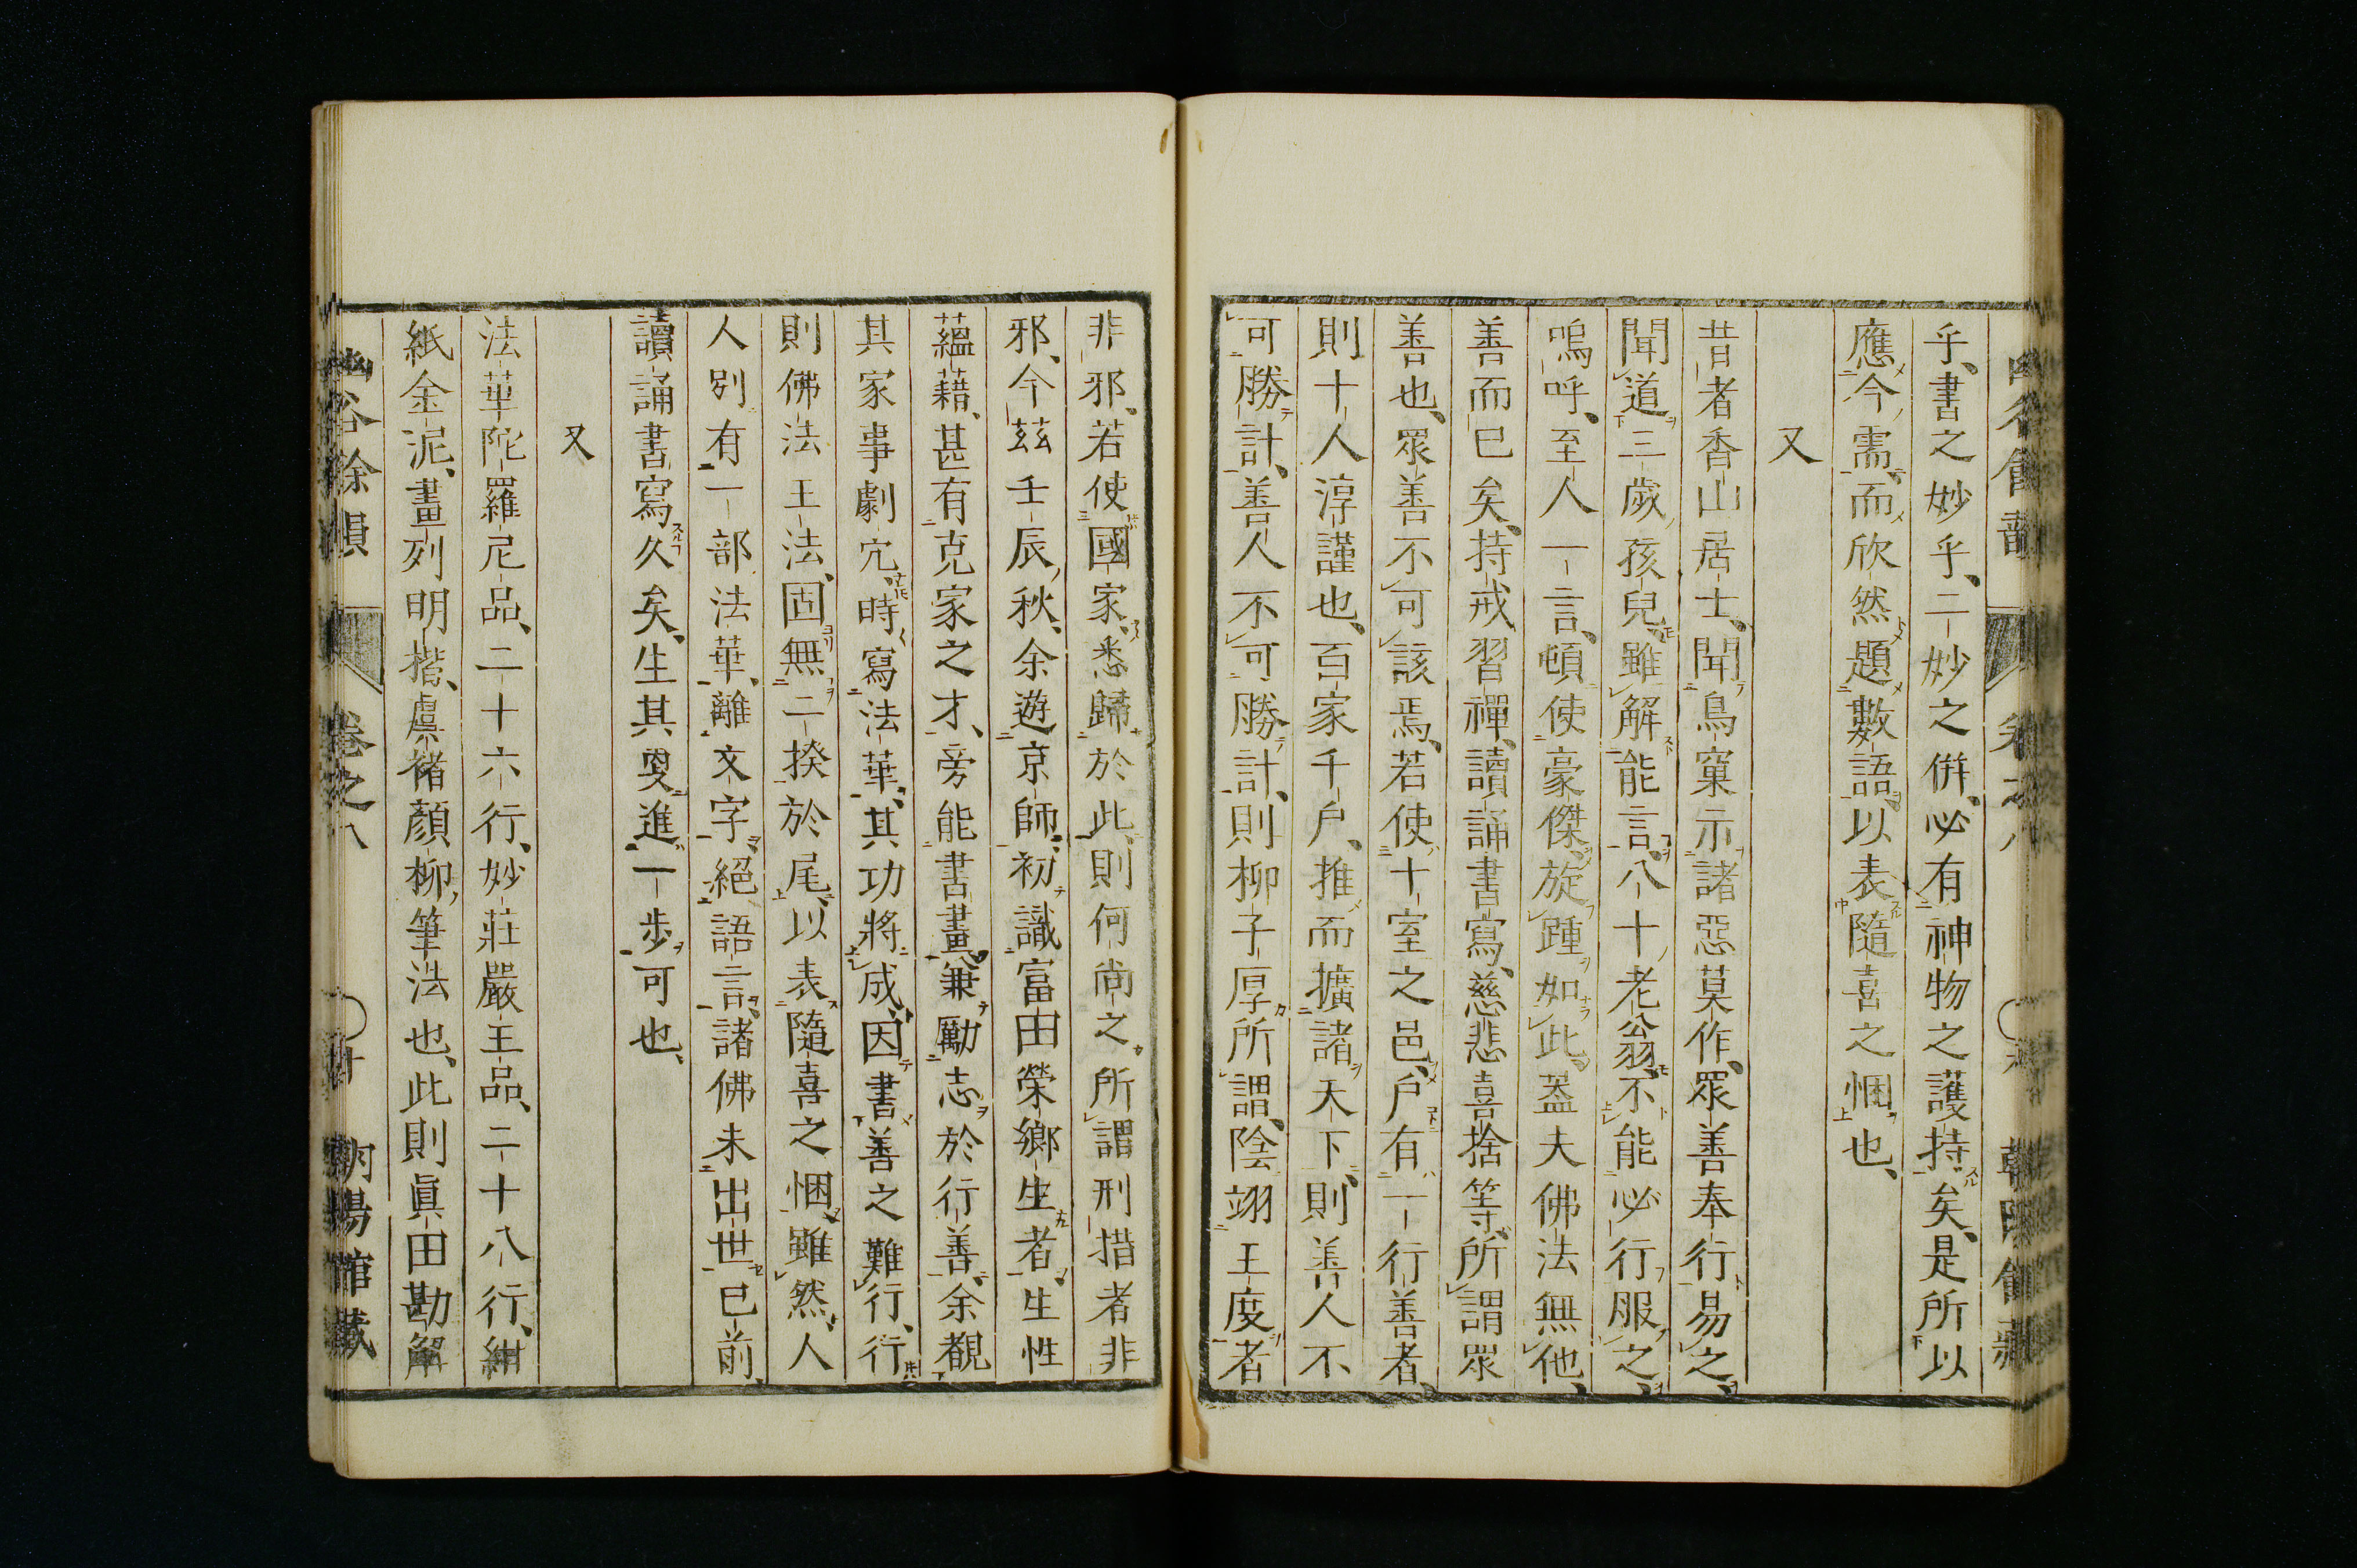 乎、書之妙乎、二妙之併、必有神物之護持矣、是所以
應今需、而欣然題數語、以表隨喜之悃也、
又
昔者香山居士、聞鳥窠示諸惡莫作、眾善奉行、易之、
聞道三歲孩兒、雖解能言、八十老翁、不能必行服之、
嗚呼、至人一言、頓使豪傑、旋踵如此、蓋夫佛法無他、
善而已矣、持戒習禪、讀誦書寫、慈悲喜捨等、所謂眾
善也、眾善不可該焉、若使十室之邑、戶有一行善者、
則十人淳謹也、百家千戶、推而擴諸天下、則善人不
可勝計、善人不可勝計、則柳子厚所謂、陰翊王度者
非邪、若使國家、悉歸於此、則何尚之所謂刑措者非
邪、今茲壬辰秋、余遊京師、初識富田榮鄉生者、生性
蘊藉、甚有克家之才、旁能書畫、兼勵志於行善、余觀
其家事劇冗、時寫法華、其功將成、因書善之難行、行
則佛法王法、固無二揆於尾、以表隨喜之悃、雖然、人
人別有一部法華、離文字、絕語言、諸佛未出世已前、
讀誦書寫久矣、生其更進一步可也、
又
法華陀羅尼品、二十六行、妙莊嚴王品、二十八行、紺
紙金泥、畫列明楷、虞褚顏柳筆法也、此則眞田勘解
谷餘韻 卷之八 廿 朝陽館藏